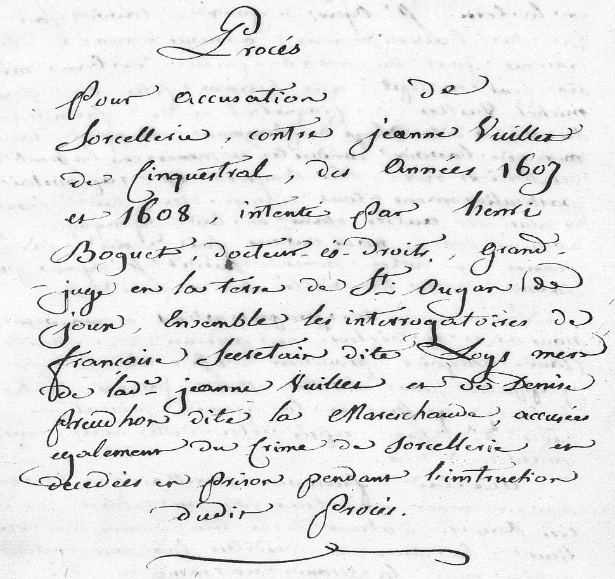 Procés
pour accusation de
Sorcellerie, contre jeanne Vuillet
de Cinquestral, des Années 1607
et 1608, intenté par henri
Boguet, docteur-es-droits, Grand-
juge en la terre de St. Ouyan de
joux, Ensemble les interrogatoires de
françoise Secretain dite Loys mere
de ladte. jeanne Vuillet et de Denise
preudhon dite la Mareschaude, accusées
egalement du Crime de Sorcellerie et
decedées en Prison pendant l'instruction
dudit Procés.